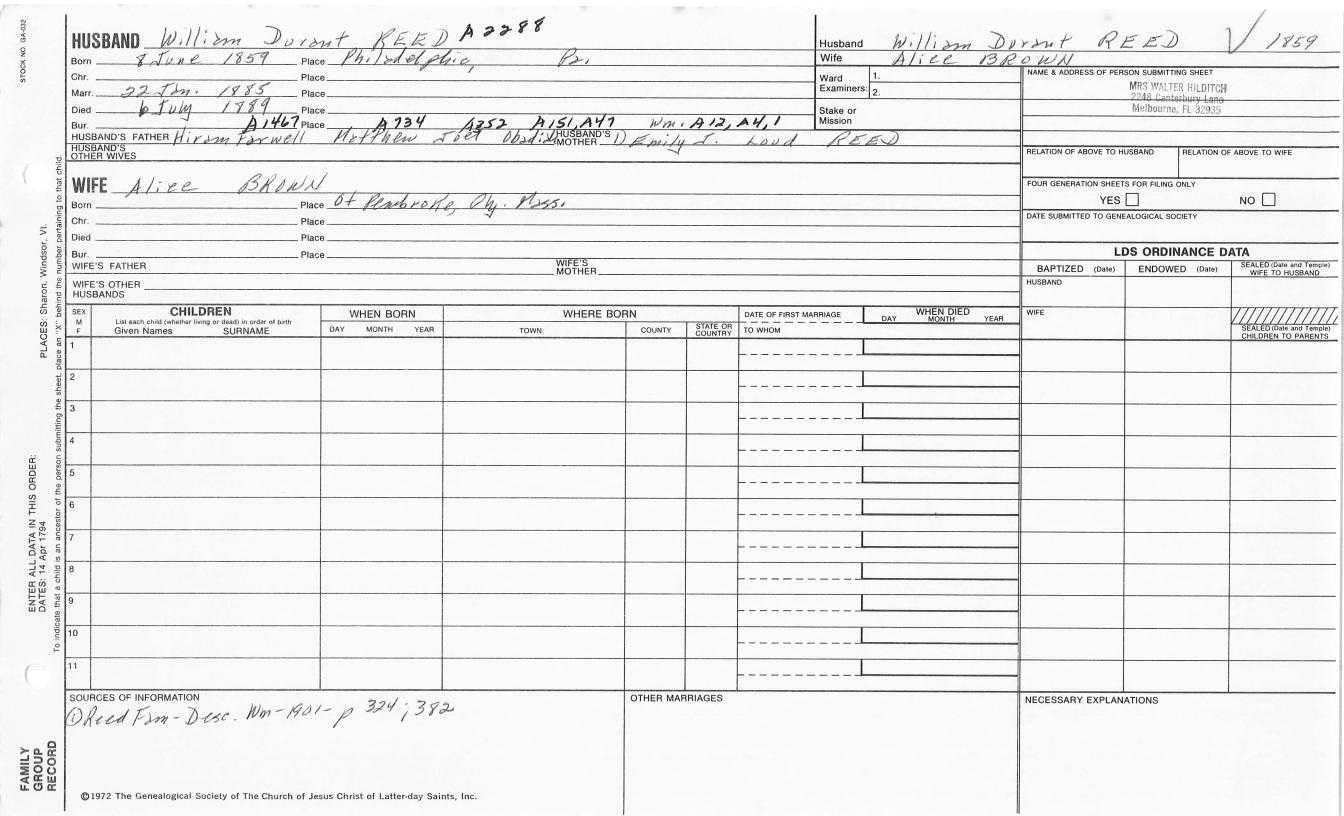 STOCK NO. GA-032
HUSBAND William Durant REED A2288
Born 8 June 1859 Place Philadelphia, Pa.
Chr. Place
Marr. 22 Jan. 1885 Place
Died 6 July 1889 Place
Bur. A1467 Place A734 A352 A151, A47 Wm. A12, A4, 1
HUSBAND'S FATHER Hiram Farwell Matthew Joel Obadi HUSBAND'S MOTHER 1) Emily J. Loud REED
HUSBAND'S OTHER WIVES
Husband William Durant REED √ 1859
Wife Alice BROWN
Ward Examiners: 1.
2.
Stake or Mission
NAME & ADDRESS OF PERSON SUBMITTING SHEET
MRS WALTER HILDITCH
2248 Canterbury Lane
Melbourne, FL 32935
RELATION OF ABOVE TO HUSBAND RELATION OF ABOVE TO WIFE
FOUR GENERATION SHEETS FOR FILING ONLY
YES NO
DATE SUBMITTED TO GENEALOGICAL SOCIETY
WIFE Alice BROWN
Born Place Of Pembroke, Mass.
Chr. Place
Died Place
Bur. Place
WIFE'S FATHER WIFE'S MOTHER
WIFE'S OTHER HUSBANDS
LDS ORDINANCE DATA
BAPTIZED (Date) ENDOWED (Date) SEALED (Date and Temple) WIFE TO HUSBAND
HUSBAND
WIFE
SEALED (Date and Temple) CHILDREN TO PARENTS
SEX M F
CHILDREN
List each child (whether living or dead) in order of birth
Given Names SURNAME
WHEN BORN
DAY MONTH YEAR
WHERE BORN
TOWN COUNTY STATE OR COUNTRY
DATE OF FIRST MARRIAGE
TO WHOM
WHEN DIED
DAY MONTH YEAR
1
2
3
4
5
6
7
8
9
10
11
SOURCES OF INFORMATION
① Reed Fam-Desc. Wm-1901- p 324; 382
OTHER MARRIAGES
NECESSARY EXPLANATIONS
©1972 The Genealogical Society of The Church of Jesus Christ of Latter-day Saints, Inc.
ENTER ALL DATA IN THIS ORDER:
DATES: 14 Apr 1794 PLACES: Sharon, Windsor, Vt.
To indicate that a child is an ancestor of the person submitting the sheet, place an "X" behind the number pertaining to that child.
FAMILY GROUP RECORD